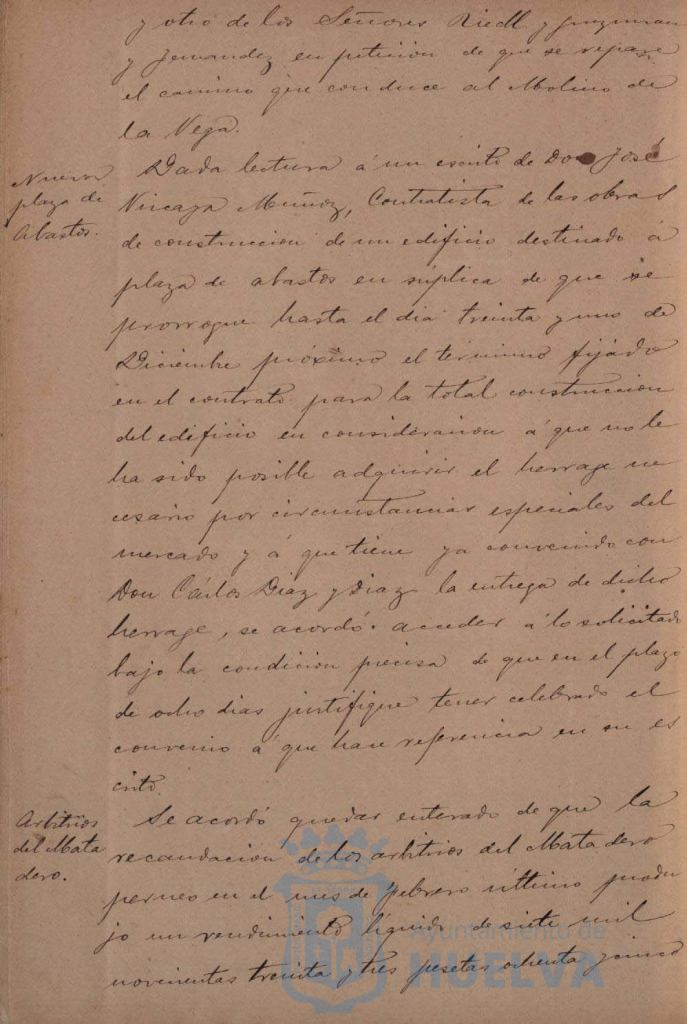 y otro de los Señores Riedl y Guzman
y Fernandez en peticion de que se repare
el camino que conduce al Molino de
la Vega.
Nueva
plaza de
Abastos.
Dada lectura á un escrito de Don José
Muñoz, Contratista de las obras
de construccion de un edificio destinado á
plaza de abastos en súplica de que se
prorrogue hasta el dia treinta y uno de
Diciembre próximo el término fijado
en el contrato para la total construccion
del edificio en consideracion á que no le
ha sido posible adquirir el herrage ne
cesario por circunstancias especiales del
mercado y á que tiene ya convenido con
Don Cárlos Diaz y Diaz la entrega de dicho
herrage, se acordó acceder á lo solicitado
bajo la condicion precisa de que en el plazo
de ocho dias justifique tener celebrado el
convenio á que hace referencia en su es
crito.
Arbitrios
del Mata
dero.
Se acordó quedar enterado de que la
recaudacion de los arbitrios del Matadero
en el mes de Febrero último produ
jo un rendimiento líquido de siete mil
novecientas treinta y tres pesetas ochenta y cinco
Ayuntamiento de
HUELVA